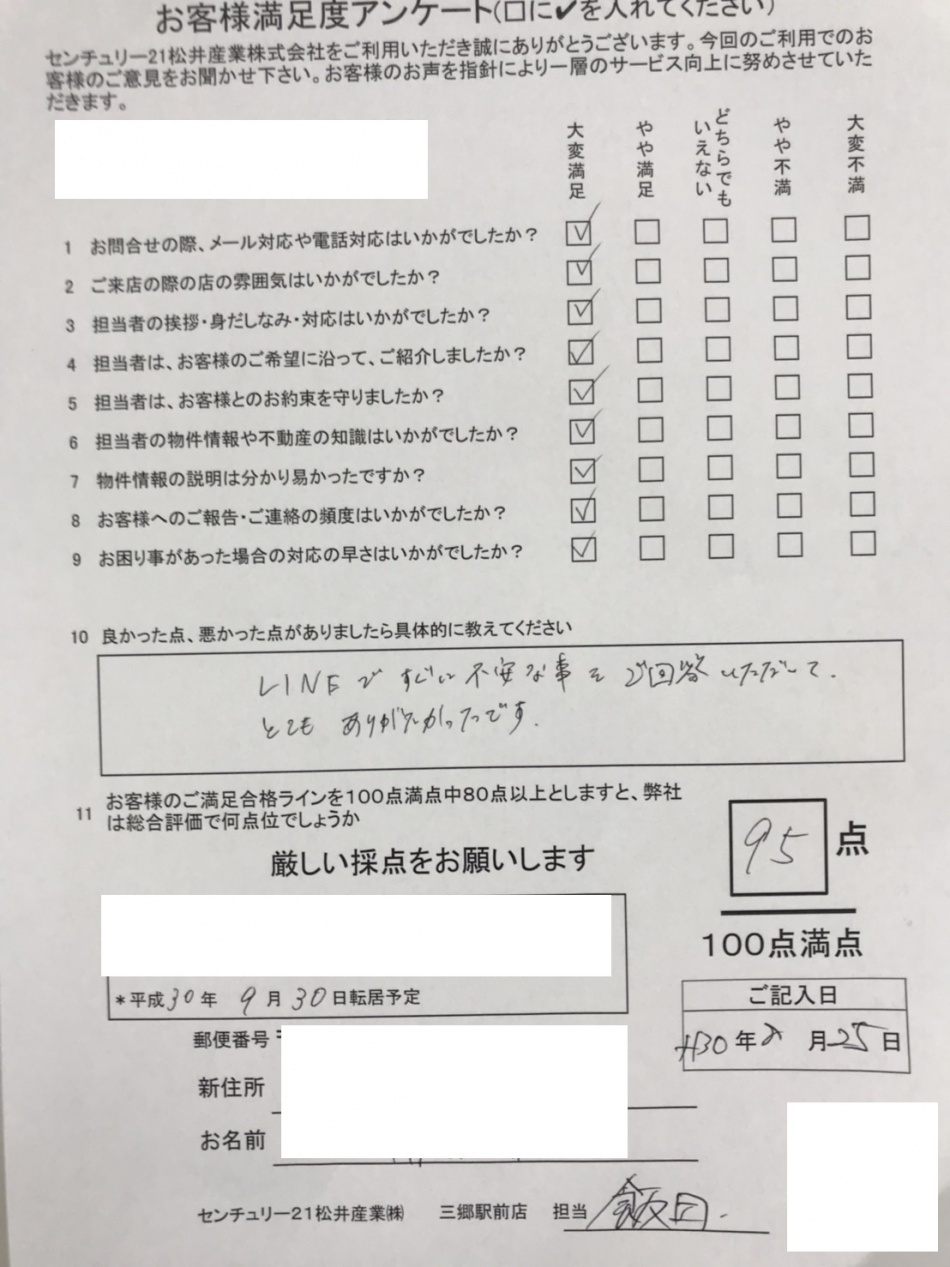 お客様満足度アンケート(口に✔を入れてください)
センチュリー21松井産業株式会社をご利用いただき誠にありがとうございます。今回のご利用でのお
客様のご意見をお聞かせ下さい。お客様のお声を指針により一層のサービス向上に努めさせていた
だきます。
大変満足 やや満足 どちらでもいえない やや不満 大変不満
1 お問合せの際、メール対応や電話対応はいかがでしたか?
2 ご来店の際の店の雰囲気はいかがでしたか?
3 担当者の挨拶・身だしなみ・対応はいかがでしたか?
4 担当者は、お客様のご希望に沿って、ご紹介しましたか?
5 担当者は、お客様とのお約束を守りましたか?
6 担当者の物件情報や不動産の知識はいかがでしたか?
7 物件情報の説明は分かり易かったですか?
8 お客様へのご報告・ご連絡の頻度はいかがでしたか?
9 お困り事があった場合の対応の早さはいかがでしたか?
10 良かった点、悪かった点がありましたら具体的に教えてください
LINEですぐに不安な事をご回答いただいて、
とてもありがたかったです.
11 お客様のご満足合格ラインを100点満点中80点以上としますと、弊社
は総合評価で何点位でしょうか
厳しい採点をお願いします
95 点
100点満点
*平成30年 9月30日転居予定
ご記入日
H30年 月25日
郵便番号
新住所
お名前
センチュリー21松井産業㈱ 三郷駅前店 担当